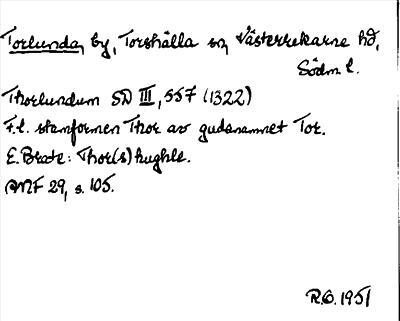 Torlunda, by, Torshälla sn, Västerrekarne hd,
Södm. l.
Thorlundum SD III, 557 (1322)
F.l. stamformen Thor av gudanamnet Tor.
E. Brate: Thor(s)hughle.
ANF 29, s. 105.
R.O. 1951